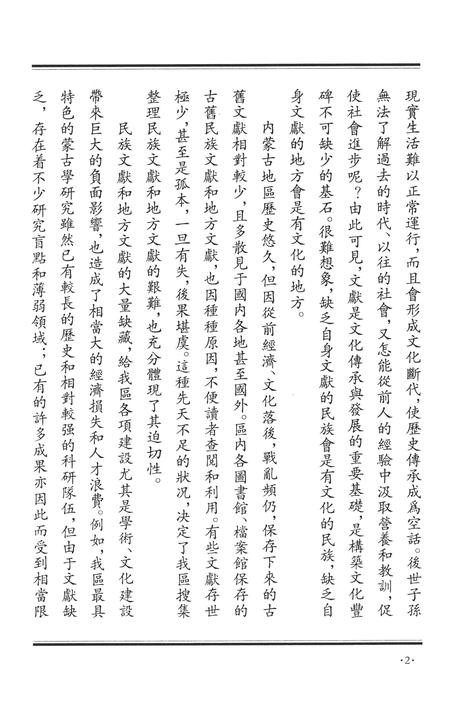 現實生活難以正常運行，而且會形成文化斷代，使歷史傳承成爲空話。後世子孫
無法了解過去的時代、以往的社會，又怎能從前人的經驗中汲取營養和教訓，促
使社會進步呢？由此可見，文獻是文化傳承與發展的重要基礎，是構築文化豐
碑不可缺少的基石。很難想象，缺乏自身文獻的民族會是有文化的民族，缺乏自
身文獻的地方會是有文化的地方。
内蒙古地區歷史悠久，但因從前經濟、文化落後，戰亂頻仍，保存下來的古
舊文獻相對較少，且多散見于國内各地甚至國外。區内各圖書館、檔案館保存的
古舊民族文獻和地方文獻，也因種種原因，不便讀者查閱和利用。有些文獻存世
極少，甚至是孤本，一旦有失，後果堪虞。這種先天不足的狀况，决定了我區搜集
整理民族文獻和地方文獻的艱難，也充分體現了其迫切性。
民族文獻和地方文獻的大量缺藏，給我區各項建設尤其是學術、文化建設
帶來巨大的負面影響，也造成了相當大的經濟損失和人才浪費。例如，我區最具
特色的蒙古學研究雖然已有較長的歷史和相對較强的科研隊伍，但由于文獻缺
乏，存在着不少研究盲點和薄弱領域；已有的許多成果亦因此而受到相當限
·2·